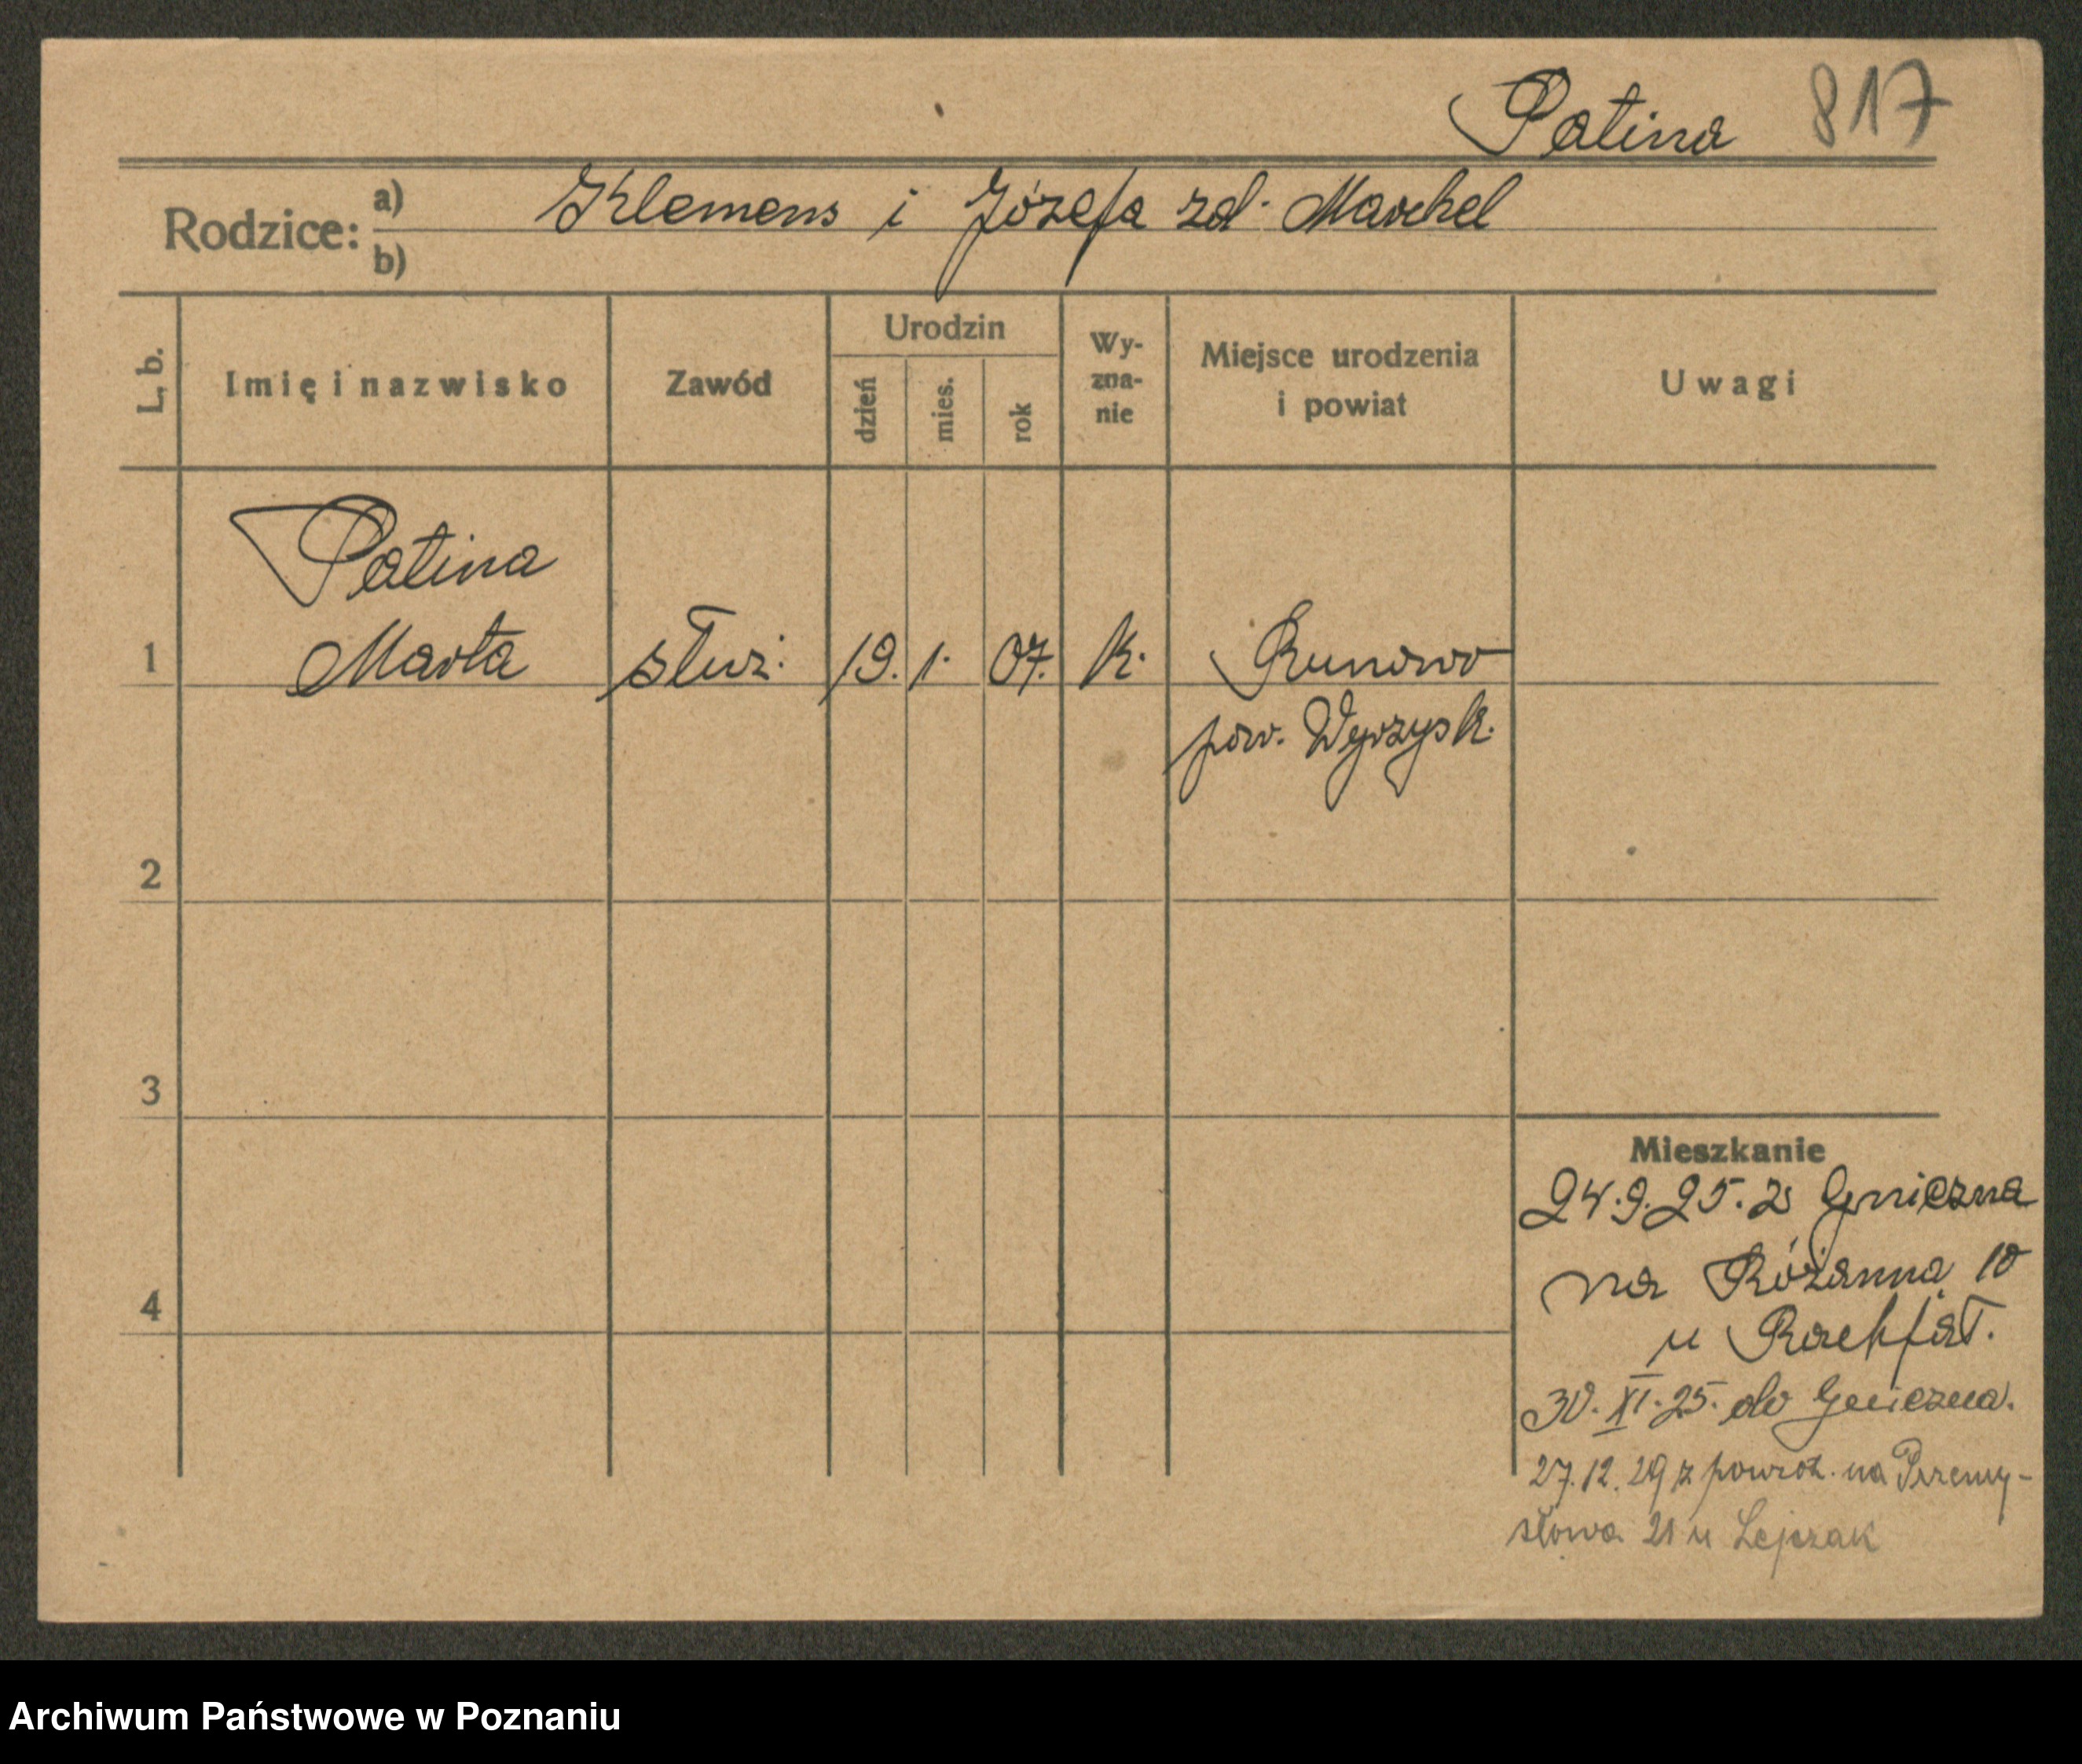 Patina 817
Rodzice: a) Klemens i Józefa zd. Marchel
b)
L, b. Imię i nazwisko Zawód Urodzin dzień mies. rok Wy-zna-nie Miejsce urodzenia i powiat Uwagi
Patina
1 Marta służ. 19. 1. 07. K. Runowo
pow. Wyrzysk.
2
3
Mieszkanie
24.9.25. z Gniezna
na Różanną 10
4
u
30.XI.25. do Gniezna.
27.12.29 z powrot. na Przemy-
słowa 21 u Lejczak
Archiwum Państwowe w Poznaniu